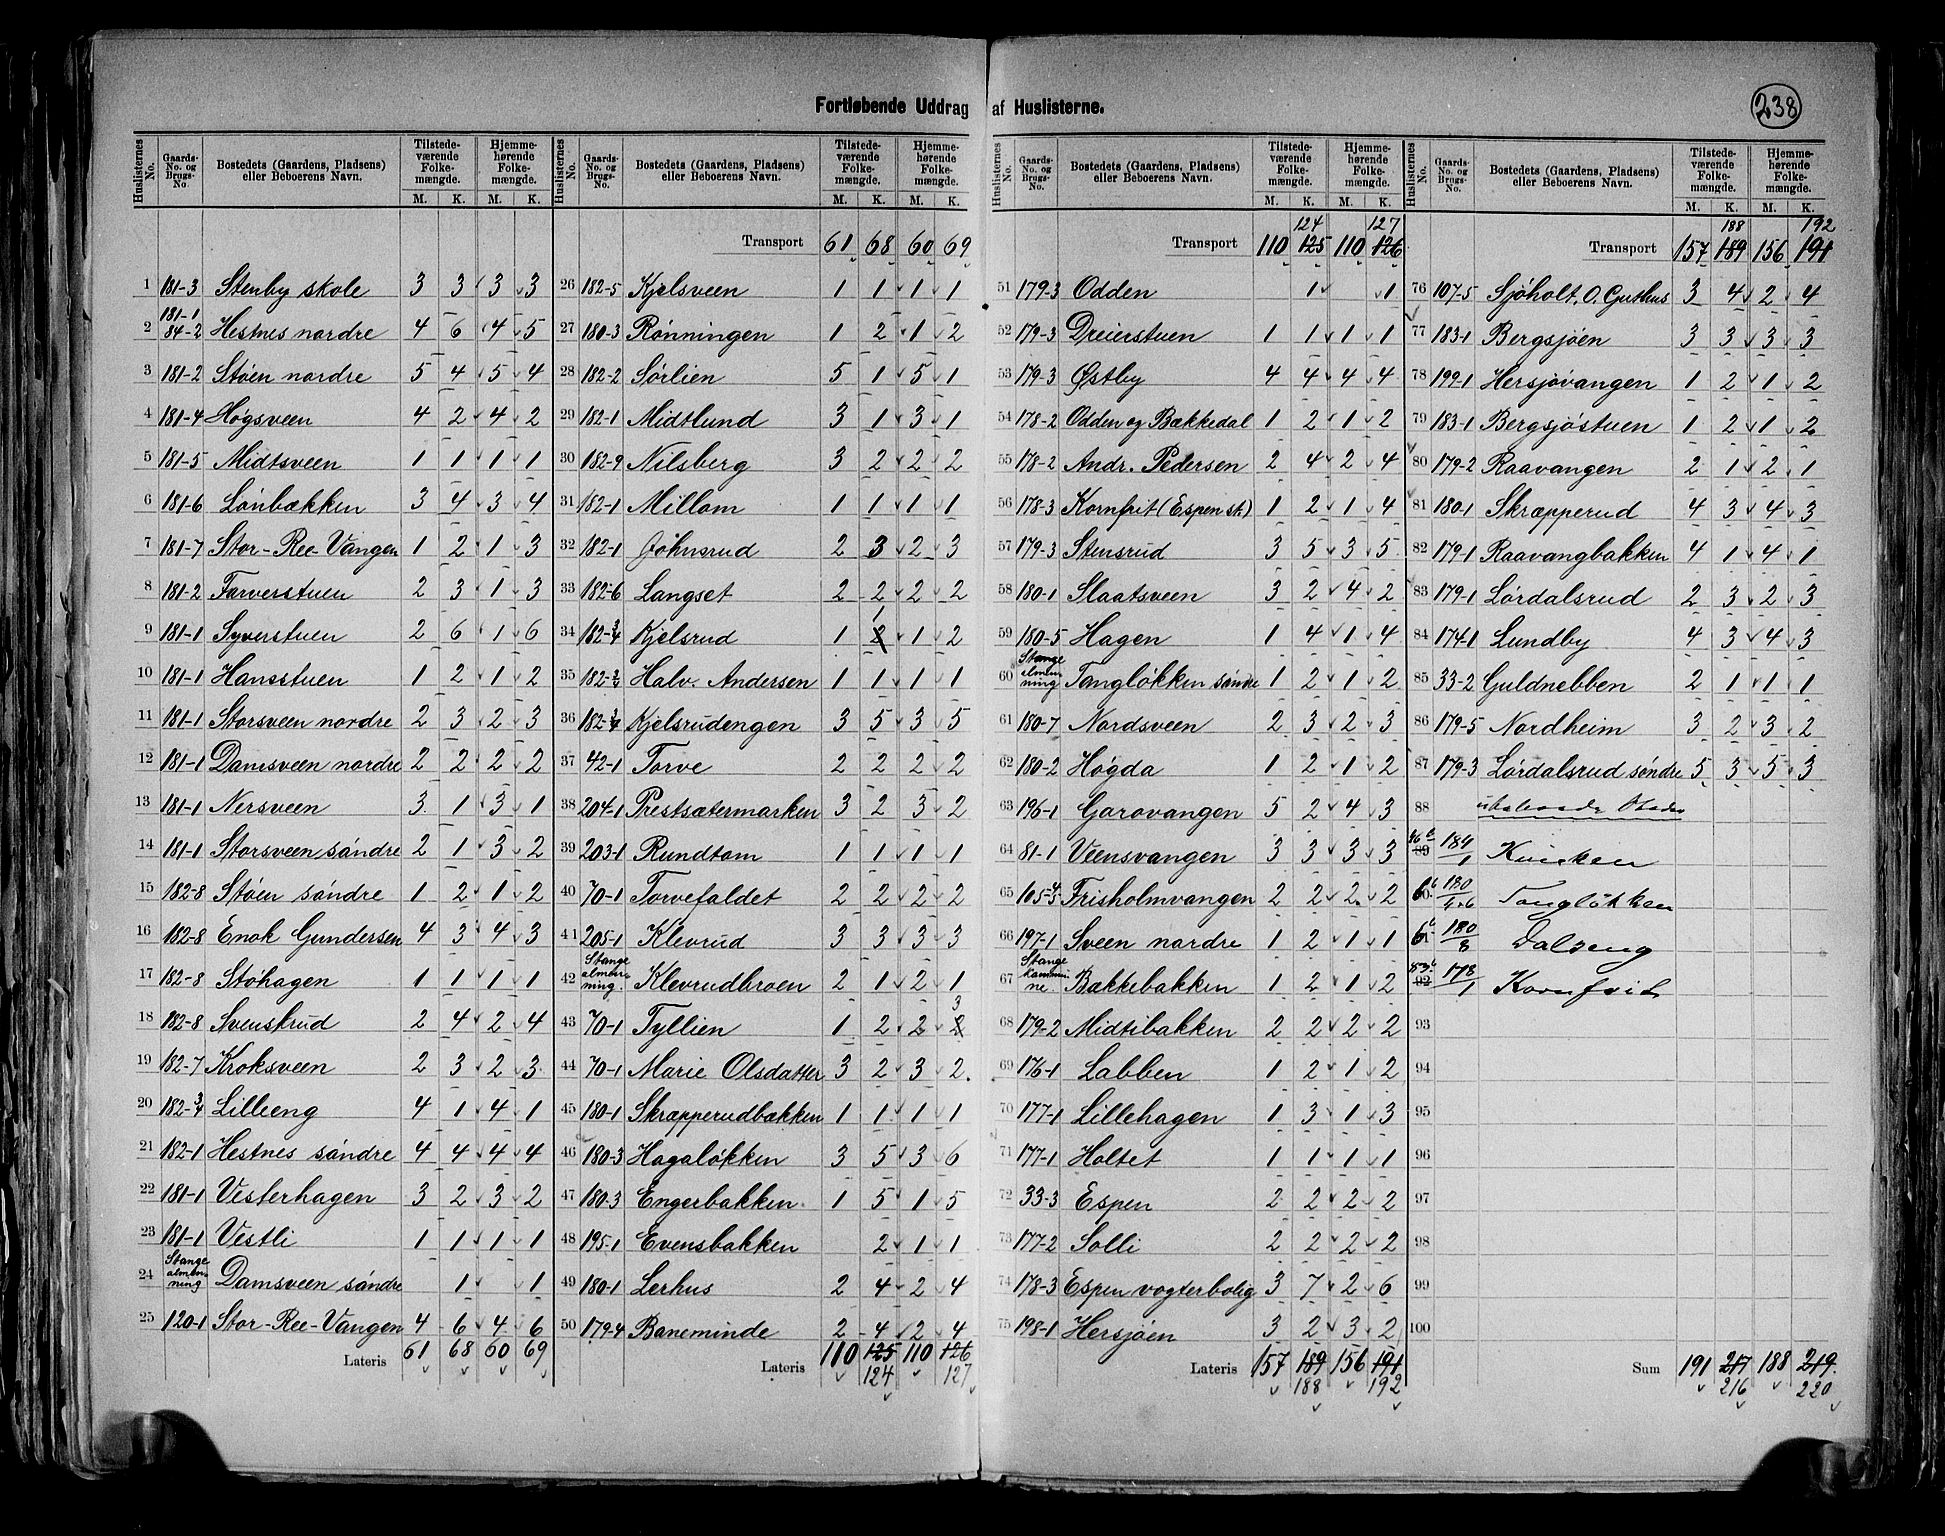 Fortløbende Uddrag af Huslisterne.
238
Huslisternes No. Gaards-No. og Brugs-No. Bostedets (Gaardens, Pladsens) eller Beboerens Navn. Tilstedeværende Folkemængde. M. K. Hjemmehørende Folkemængde. M. K.
1 181-3 Stenby skole 3 3 3 3
2 181-1 84-2 Hestnes nordre 4 6 4 5
3 181-2 Støen nordre 5 4 5 4
4 181-4 Høgsveen 4 2 4 2
5 181-5 Midtsveen 1 1 1 1
6 181-6 Lønbækken 3 4 3 4
7 181-7 Stor-Ree-Vangen 1 2 1 3
8 181-2 Farverstuen 2 3 1 3
9 181-1 Syverstuen 2 6 1 6
10 181-1 Hansstuen 1 2 1 2
11 181-1 Storsveen nordre 2 3 2 3
12 181-1 Damsveen nordre 2 2 2 2
13 181-1 Nersveen 3 1 3 1
14 181-1 Storsveen søndre 2 1 3 2
15 182-8 Støen søndre 1 2 1 2
16 182-8 Enok Gundersen 4 3 4 3
17 182-8 Støhagen 1 1 1 1
18 182-8 Svenstrud 2 4 2 4
19 182-7 Kroksveen 2 3 2 3
20 182-3/4 Lilleeng 4 1 4 1
21 182-1 Hestnes søndre 4 4 4 4
22 181-1 Vesterhagen 3 2 3 2
23 181-1 Vestli 1 1 1 1
24 Stange almenning Damsveen søndre 1 1
25 120-1 Stor-Ree-Vangen 4 6 4 6
Lateris 61 68 60 69
Huslisternes No. Gaards-No. og Brugs-No. Bostedets (Gaardens, Pladsens) eller Beboerens Navn. Tilstedeværende Folkemængde. M. K. Hjemmehørende Folkemængde. M. K.
Transport 61 68 60 69
26 182-5 Kjelsveen 1 1 1 1
27 180-3 Rønningen 1 2 1 2
28 182-2 Sørlien 5 1 5 1
29 182-1 Midtlund 3 1 3 1
30 182-9 Nilsberg 3 2 2 2
31 182-1 Millom 1 1 1 1
32 182-1 Jøhnsrud 2 3 2 3
33 182-6 Langset 2 2 2 2
34 182-3/4 Kjelsrud 1 1 1 2
35 182-3/4 Halv. Andersen 1 1 1 1
36 182-3/4 Kjelsrudengen 3 5 3 5
37 42-1 Torve 2 2 2 2
38 204-1 Prestsætermarken 3 2 3 2
39 203-1 Rundtom 1 1 1 1
40 70-1 Torvefaldet 2 2 2 2
41 205-1 Klevrud 3 3 3 3
42 Stange almenning. Klevrudbroen 2 1 2 1
43 70-1 Tyllien 1 2 2 3
44 70-1 Marie Olsdatter 3 2 3 2
45 180-1 Skræpperudbækken 1 1 1 1
46 180-3 Hagaløkken 3 5 3 6
47 180-3 Engerbakken 1 5 1 5
48 195-1 Evensbakken 2 1 1
49 180-1 Lerhus 2 4 2 4
50 179-4 Baneminde 2 4 2 4
Lateris 110 125 110 126
124 127
Huslisternes No. Gaards-No. og Brugs-No. Bostedets (Gaardens, Pladsens) eller Beboerens Navn. Tilstedeværende Folkemængde. M. K. Hjemmehørende Folkemængde. M. K.
124 127
Transport 110 125 110 126
51 179-3 Odden 1 1
52 179-3 Dreierstuen 1 1 1 1
53 179-3 Østby 4 4 4 4
54 178-2 Odden og Bækkedal 1 2 1 2
55 178-2 Andr. Pedersen 2 4 2 4
56 178-3 Kornfrit (Espen st.) 1 2 1 4
57 179-3 Stensrud 3 5 3 5
58 180-1 Slaatsveen 3 2 4 2
59 180-5 Hagen 1 4 1 4
60 Stange almenning Tangløkken søndre 1 2 1 2
61 180-7 Nordsveen 2 3 2 3
62 180-2 Høgda 1 2 1 2
63 196-1 Garovangen 5 2 4 3
64 81-1 Veensvangen 3 3 3 3
65 105-4 Frisholmvangen 2 2 2 2
66 197-1 Sveen nordre 1 2 1 1
67 Stange kommune. Bakkebakken 1 2 1 2
68 179-2 Midtibakken 2 2 2 2
69 176-1 Labben 1 2 1 2
70 177-1 Lillehagen 1 3 1 3
71 177-1 Holtet 1 1 1 1
72 33-3 Espen 2 2 2 2
73 177-2 Solli 2 2 2 2
74 178-3 Espen vogterbolig 3 7 2 6
75 198-1 Hersjøen 3 2 3 2
Lateris 157 189 156 191
188 192
Huslisternes No. Gaards-No. og Brugs-No. Bostedets (Gaardens, Pladsens) eller Beboerens Navn. Tilstedeværende Folkemængde. M. K. Hjemmehørende Folkemængde. M. K.
188 192
Transport 157 189 156 191
76 107-5 Sjøholt, O. Guthus 3 4 2 4
77 183-1 Bergsjøen 3 3 3 3
78 199-1 Hersjøvangen 1 2 1 2
79 183-1 Bergsjøstuen 1 2 1 2
80 179-2 Raavangen 2 1 2 1
81 180-1 Skræpperud 4 3 4 3
82 179-1 Raavangbakken 4 1 4 1
83 179-1 Lørdalsrud 2 3 2 3
84 174-1 Lundby 4 3 4 3
85 33-2 Guldnebben 2 1 1 1
86 179-5 Nordheim 3 2 3 2
87 179-3 Lørdalsrud søndre 5 3 5 3
88
89
90 Tangløkken
180/8 Dalseng
92 178/1 Kornfrit
93
94
95
96
97
98
99
100
Sum 191 217 188 219
216 220